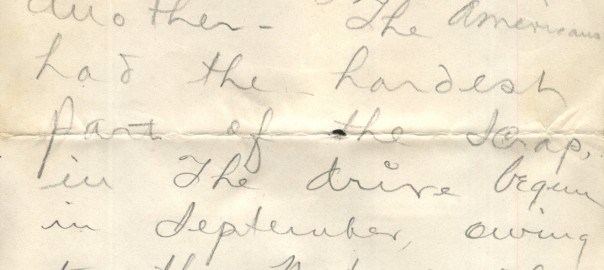 another - The Americans
had the hardest
part of the scrap,
in The drive begun
in September, owing
to the